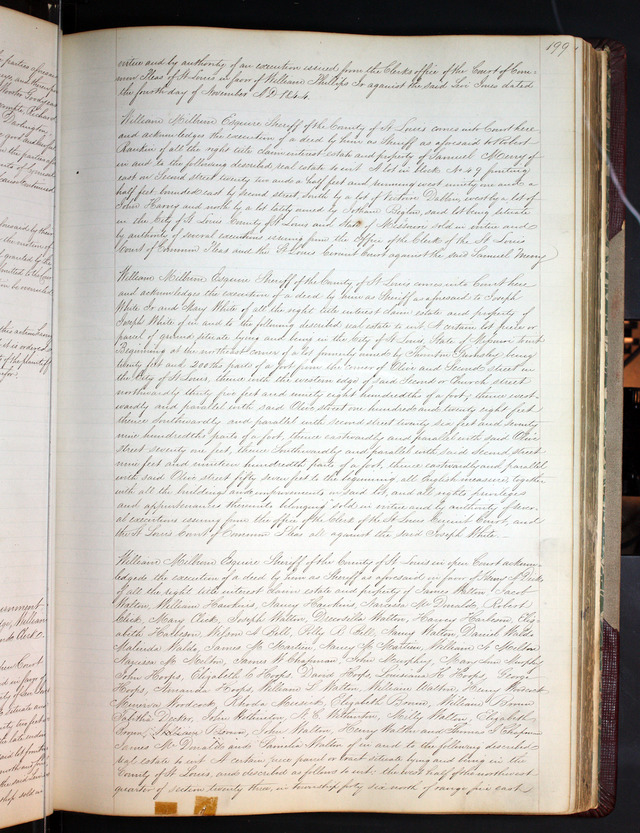 199
virtue and by authority of an execution issued from the Clerks office of the Court of Com=
mon Pleas of St Louis in favor of William Phillips Jr against the said Levi Jones dated
the fourth day of November A D 1844.
William Milburn Esquire Sheriff of the County of St Louis comes into Court here
and acknowledges the execution of a deed by him as Sheriff as aforesaid to Robert
Rankin of all the right title claim interest estate and property of Samuel Merry of
in and to the following described real estate to wit A lot in block No 47 fronting
east on Second street twenty two and a half feet and running west ninety one and a
half feet bounded east by Second street South by a lot of west by a lot of
John Harris and north by a lot lately owned by said lot being situate
in the City of St Louis County of St Louis and State of Missouri sold in virtue and
by authority of several executions issuing from the Office of the Clerk of the St Louis
Court of Common Pleas and the St Louis Circuit Court against the said Samuel Merry
William Milburn Esquire Sheriff of the County of St Louis comes into Court here
and acknowledges the execution of a deed by him as Sheriff as aforesaid to Joseph
White Jr and Mary White of all the right title interest claim estate and property of
Joseph White of in and to the following described real estate to wit. A certain lot piece or
parcel of ground situate lying and being in the City of St Louis, State of Missouri to wit
Beginning at the northeast corner of a lot formerly owned by Thornton Grimsley being
feet and 200ths parts of a foot from the corner of Olive and Second street in
the City of St Louis, thence with the western edge of said Second or Church street
northwardly thirty five feet and ninety eight hundredths of a foot; thence west=
wardly and parallel with said Olive street one hundred and twenty eight feet
thence Southwardly and parallel with Second street twenty six feet and seventy
nine hundredths parts of a foot, thence eastwardly and parallel with said Olive
street seventy one feet, thence Southwardly and parallel with said Second street
nine feet and nineteen hundredth parts of a foot, thence eastwardly and parallel
with said Olive street fifty seven feet to the beginning, all English measure, together
with all the buildings and improvements on said lot, and all rights privileges
and appurtenances thereunto belonging sold in virtue and by authority of sever=
al executions issuing from the office of the Clerk of the St Louis Circuit Court, and
the St Louis Court of Common Pleas all against the said Joseph White.
William Milburn Esquire Sheriff of the County of St Louis in open Court acknow=
ledges the execution of a deed by him as Sheriff as aforesaid in favor of
of all the right title interest claim estate and property of James Walton, Jacob
Walton, William Hawkins, Nancy Hawkins, Narcissa Mc Donald, Robert
Click, Mary Click, Joseph Walton, Drucilla Walton, Harvey Harleson, Eliz=
abeth Harleson, Wilson L Bell, Polly B Bell, Nancy Walton, Daniel Waldo
Malinda Waldo, James M Martin, Nancy M Martin, William A Melton
Narcissa M Melton, James W Chapman, John Murphy, Mary Ann Murphy
John Hoops, Elizabeth C Hoops, David Hoops, Louisiana W Hoops, George
Hoops, Amanda Hoops, William L Walton, William Walton, Henry
Minerva Woodcock, Rhoda Messick, Elizabeth Brown, William Brown
Tabitha Doctor, John Witherinton, S. E. Witherinton, Milly Walton, Elizabeth
Brown, Brown, John Walton, Henry Walton and Thomas Chapman
James Mc Donald and Pamelia Walton of in and to the following described
real estate to wit A certain piece parcel or tract situate lying and being in the
County of St Louis, and described as follows to wit: the west half of the northwest
quarter of section twenty three, in township forty six north of range five east